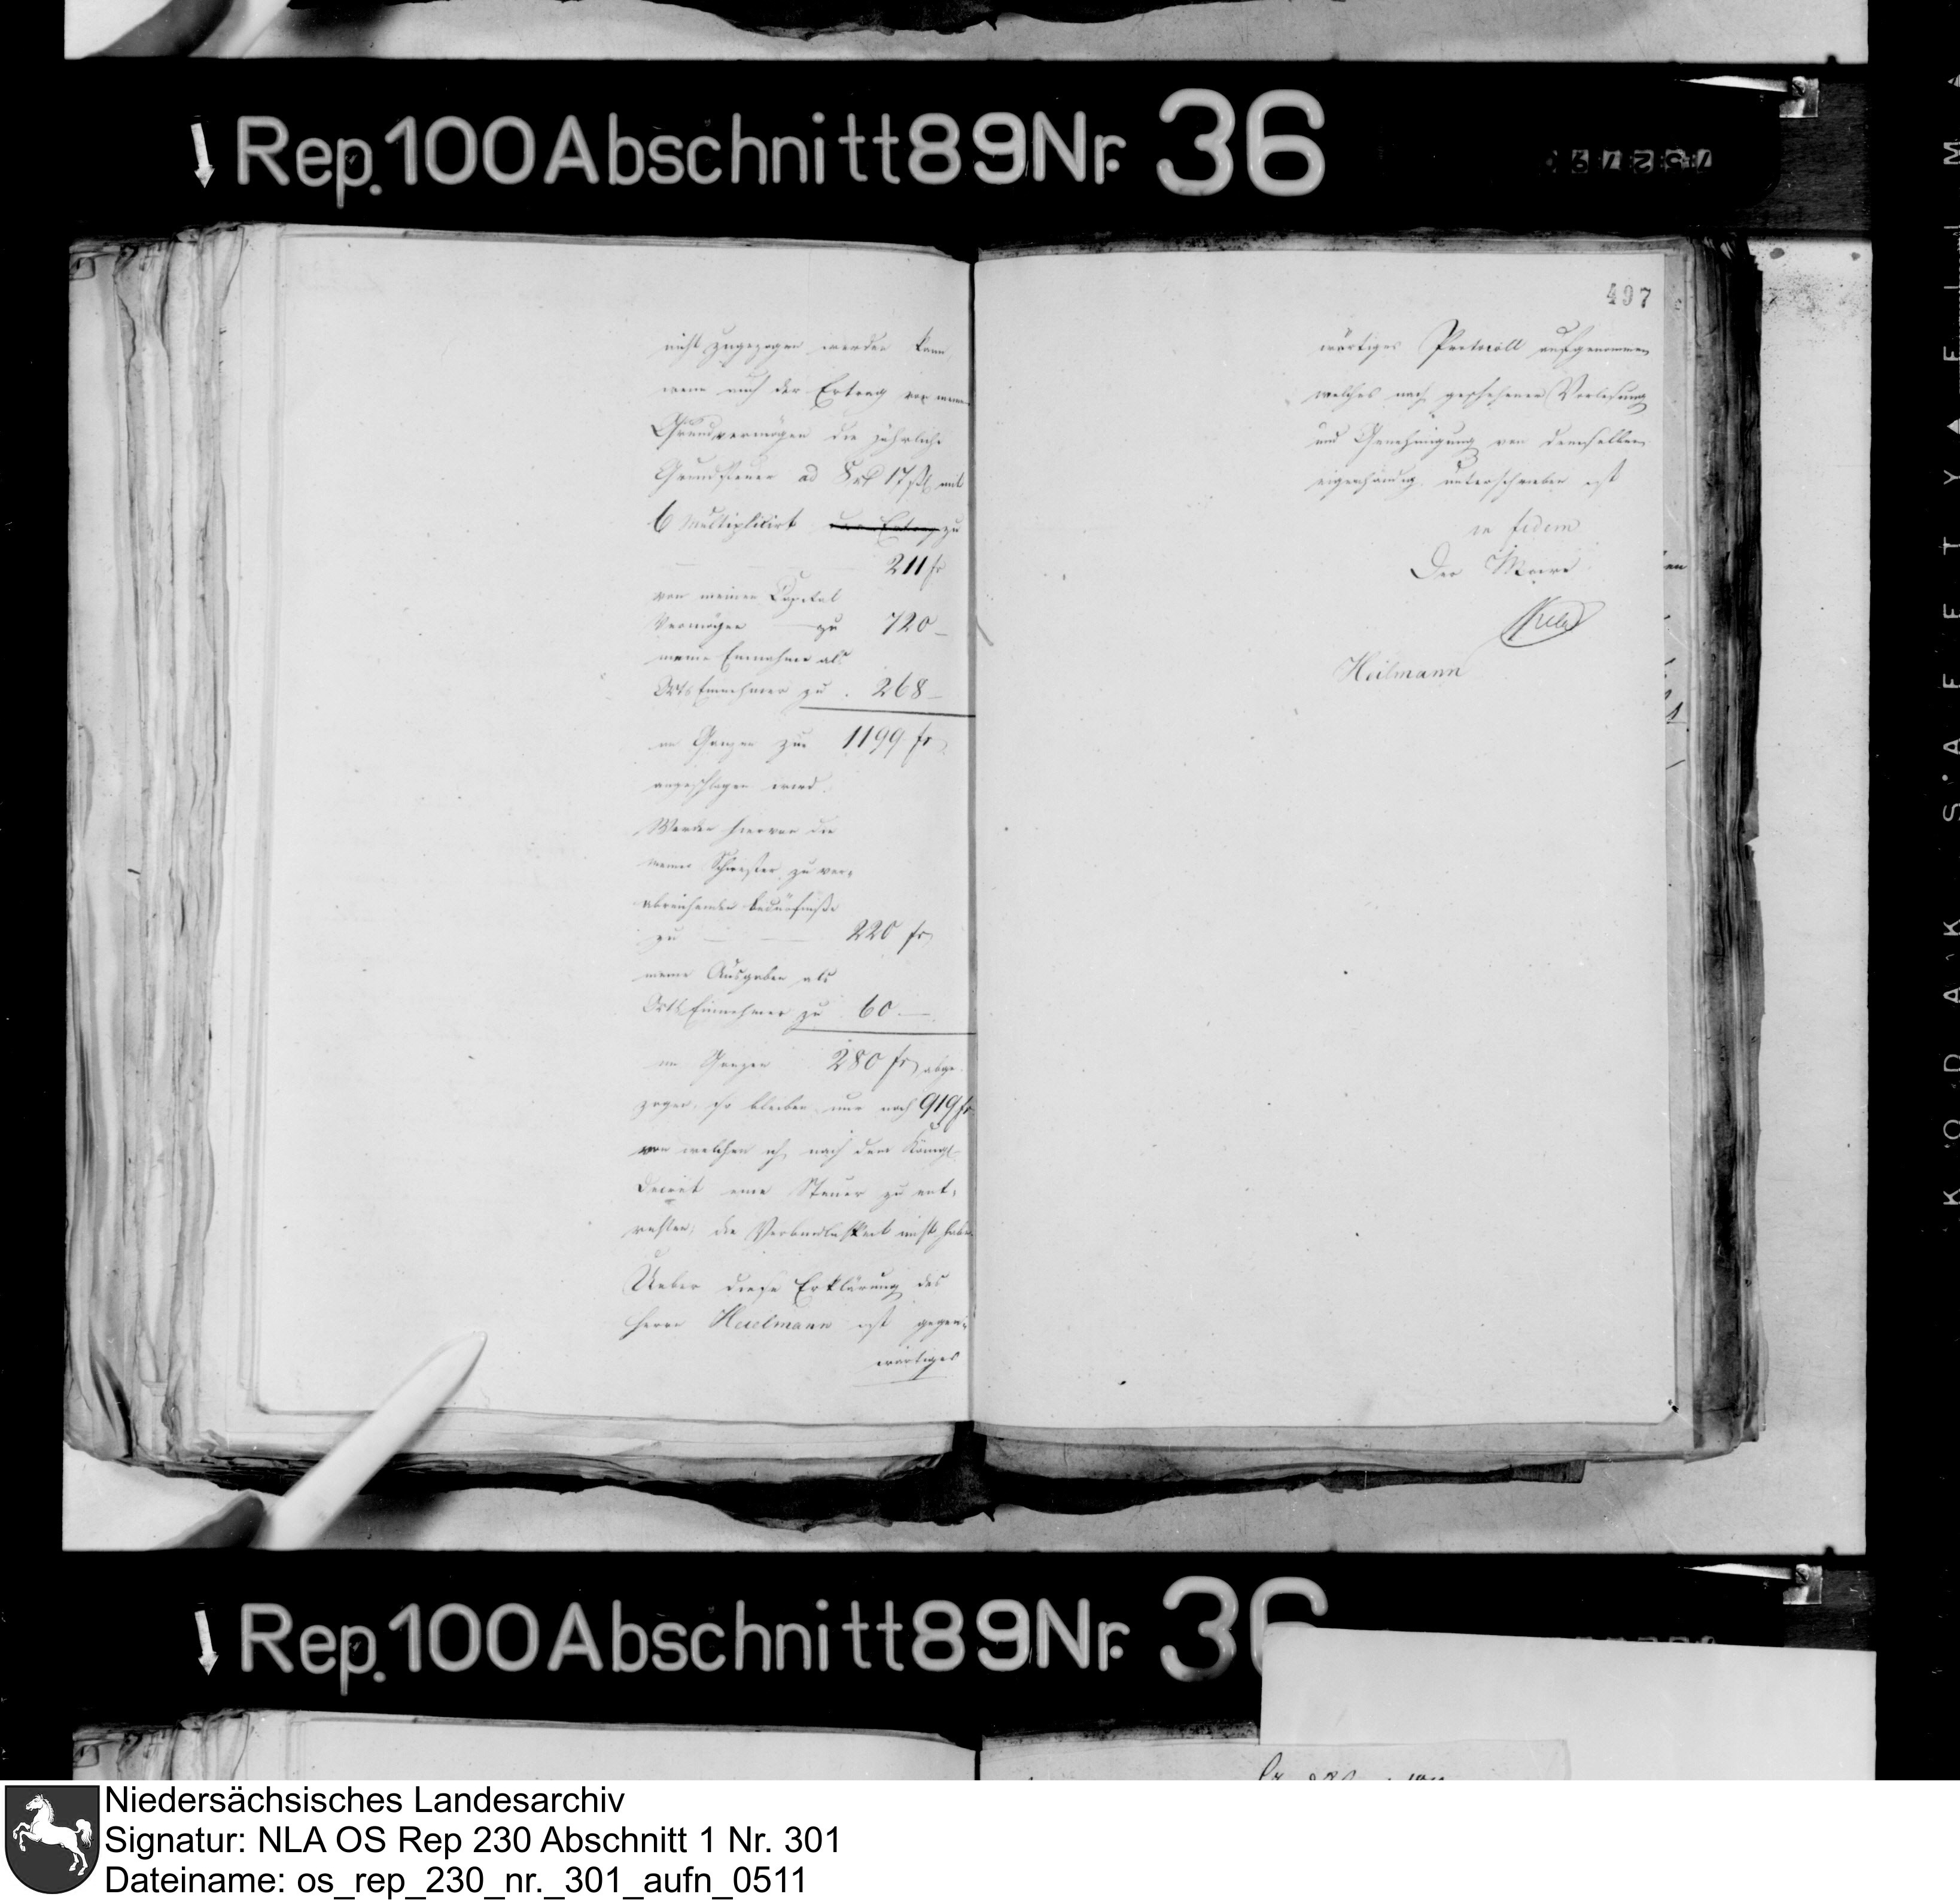 Rep. 100 Abschnitt 89 Nr. 36
nicht zugezogen werden kann,
wenn auch der Ertrag von meinem
Grundvermögen die jährliche
Grundsteuer ad 8 rt 17 ßl mit
6 Multiplicirt zu
211 fr
von meinem Capital
Vermögen — zu 720 —
meine Einnahme als
Orts Einnehmer zu . 268 —
im Ganzen zu 1199 fr
angeschlagen wird.
Werden hiervon die
meiner Schwester zu ver-
abreichenden Bedürfniße
zu — — 220 fr
meine Ausgaben als
Orts Einnehmer zu 60. —
im Ganzen 280 fr abge-
zogen, so bleiben nur noch 919 fr
von welchen ich nach dem Königl.
Decret eine Steuer zu ent-
richten, die Verbindlichkeit nicht habe.
Ueber diese Erklärung des
Herrn Heilmann ist gegen-
wärtiges
497
wärtiges Protocoll aufgenommen
welches nach geschehener Vorlesung
und Genehmigung von demselben
eigenhändig unterschrieben ist
in fidem
Der Maire
Heilmann
Rep. 100 Abschnitt 89 Nr. 36
KODAK SAFETY
Niedersächsisches Landesarchiv
Signatur: NLA OS Rep 230 Abschnitt 1 Nr. 301
Dateiname: os_rep_230_nr._301_aufn_0511